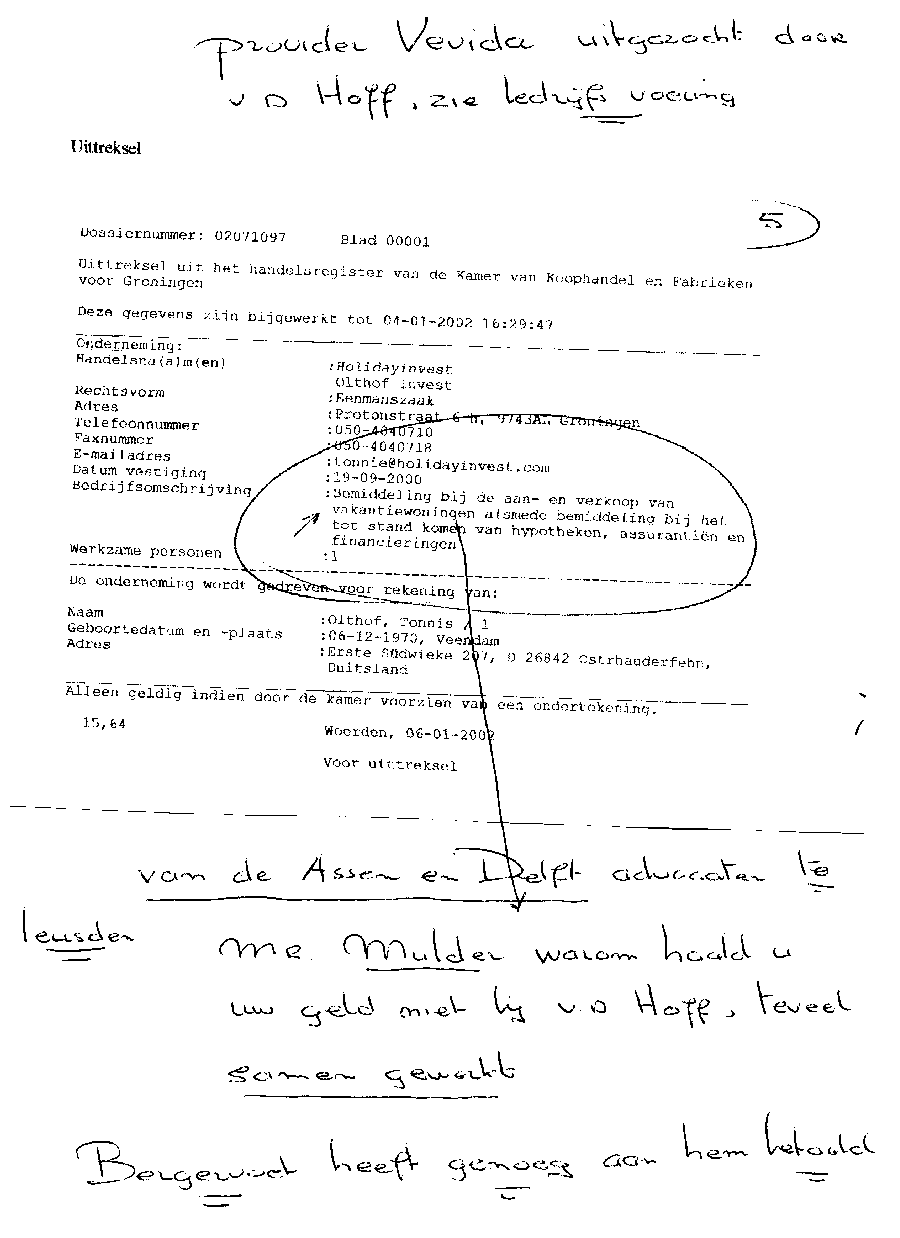 provider Vevida uitgezocht door
v D Hoff, zie bedrijfs voering
Uittreksel
5
Dossiernummer: 02071097 Blad 00001
Uittreksel uit het handelsregister van de Kamer van Koophandel en Fabrieken
voor Groningen
Deze gegevens zijn bijgewerkt tot 04-01-2002 16:29:47
Onderneming:
Handelsna(a)m(en) :Holidayinvest
Olthof invest
Rechtsvorm :Eenmanszaak
Adres :Protonstraat 6 h, 9743AL Groningen
Telefoonnummer :050-4040710
Faxnummer :050-4040718
E-mailadres :tonnie@holidayinvest.com
Datum vestiging :19-09-2000
Bedrijfsomschrijving :Bemiddeling bij de aan- en verkoop van
vakantiewoningen alsmede bemiddeling bij het
tot stand komen van hypotheken, assurantiën en
financieringen
Werkzame personen :1
De onderneming wordt gedreven voor rekening van:
Naam :Olthof, Tonnis / 1
Geboortedatum en -plaats :06-12-1970, Veendam
Adres :Erste Südwieke 207, D 26842 Ostrhauderfehn,
Duitsland
Alleen geldig indien door de kamer voorzien van een ondertekening.
15,64 Woerden, 06-01-2002
Voor uittreksel
van de Assen en Delft advocaten te
leusden mr. Mulder warom haald u
uw geld niet bij v.D Hoff, teveel
samen gewerkt
heeft genoeg aan hem betaald